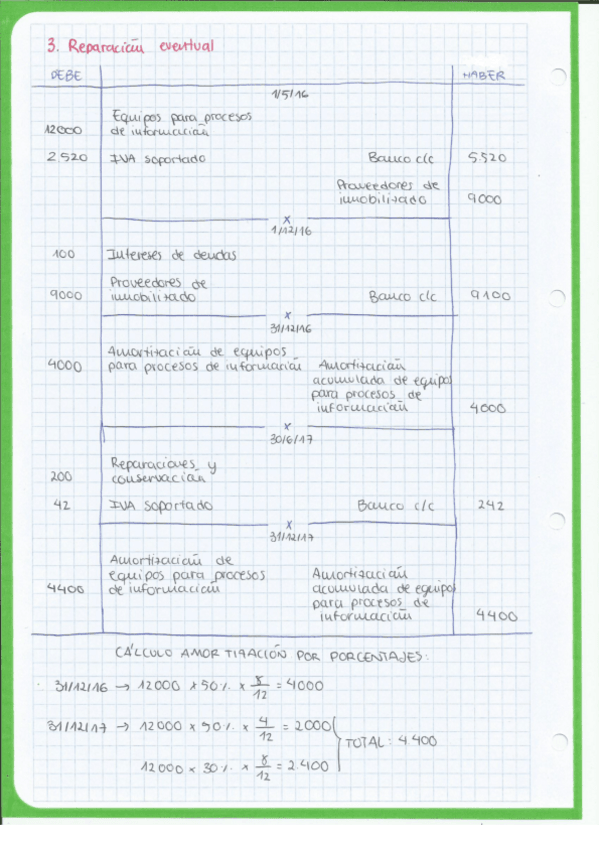 3. Reparación eventual
DEBE HABER
1/5/16
Equipos para procesos
12000 de información
2.520 IVA soportado Banco c/c 5.520
Proveedores de
inmovilizado 9000
x
1/12/16
100 Intereses de deudas
Proveedores de
9000 inmovilizado Banco c/c 9100
x
31/12/16
Amortización de equipos
4000 para procesos de información Amortización
acumulada de equipos
para procesos de
información 4000
x
30/6/17
Reparaciones y
200 conservación
42 IVA soportado Banco c/c 242
x
31/12/17
Amortización de
equipos para procesos Amortización
4400 de información acumulada de equipos
para procesos de
información 4400
CÁLCULO AMORTIZACIÓN POR PORCENTAJES:
31/12/16 → 12000 x 50% x 8/12 = 4000
31/12/17 → 12000 x 50% x 4/12 = 2000
TOTAL: 4.400
12000 x 30% x 8/12 = 2.400